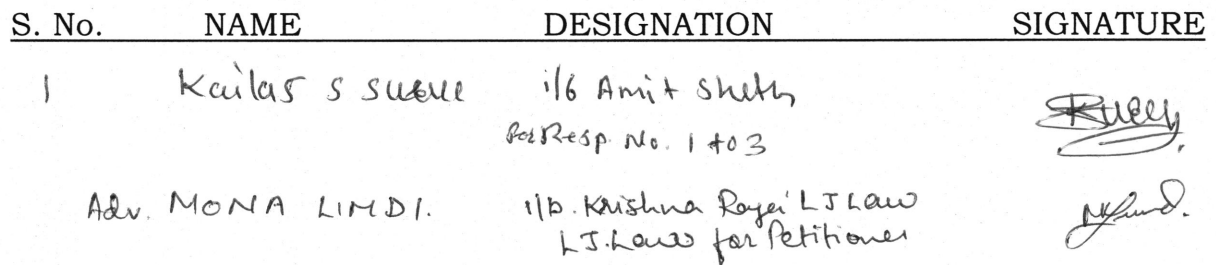 S. No. NAME DESIGNATION SIGNATURE
1 Kailas S i/b Amit Sheth
for Resp. No. 1 to 3
Adv. MONA LIMDI. i/b. Krishna LJ Law
LJ. Law for Petitioner